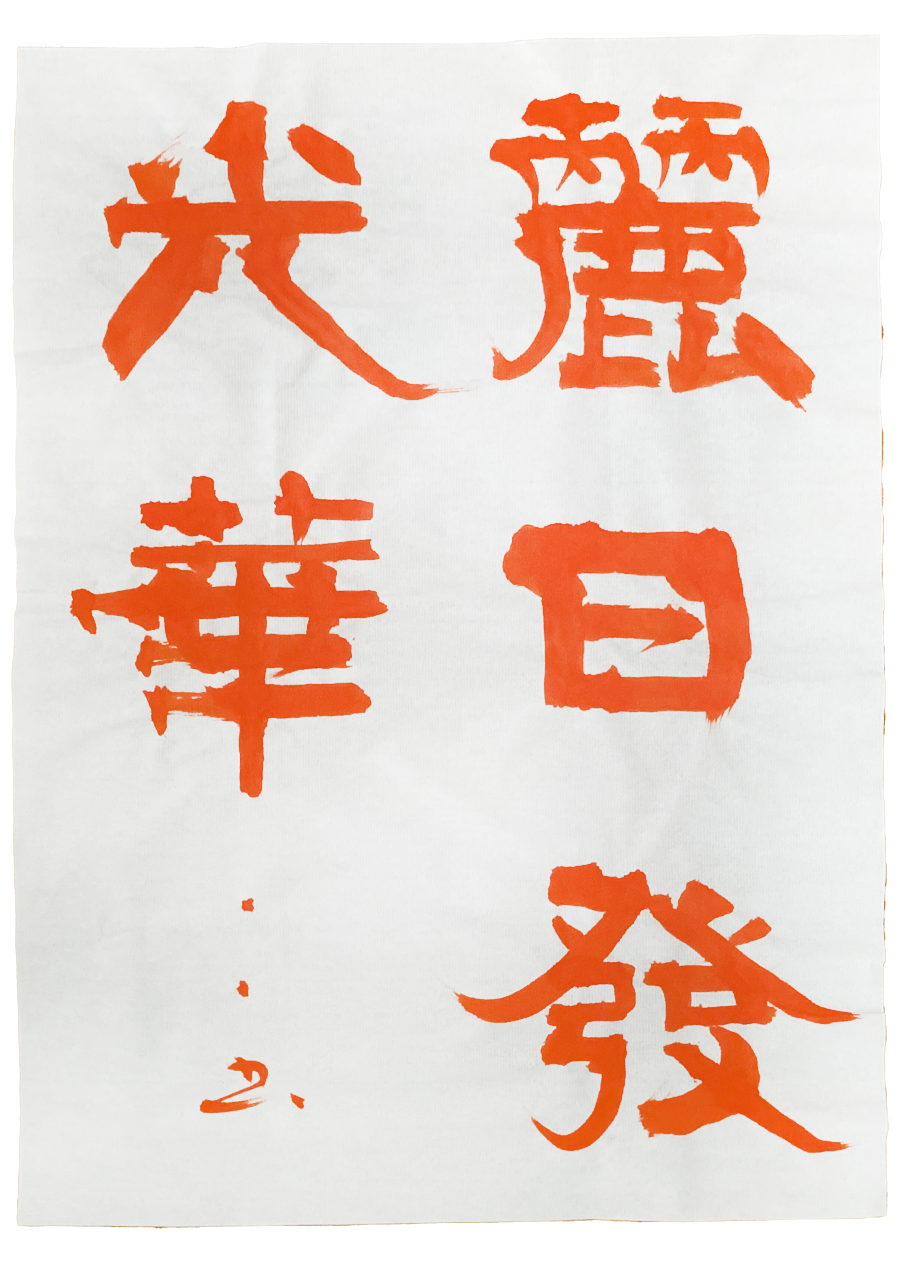 麗日發
光華